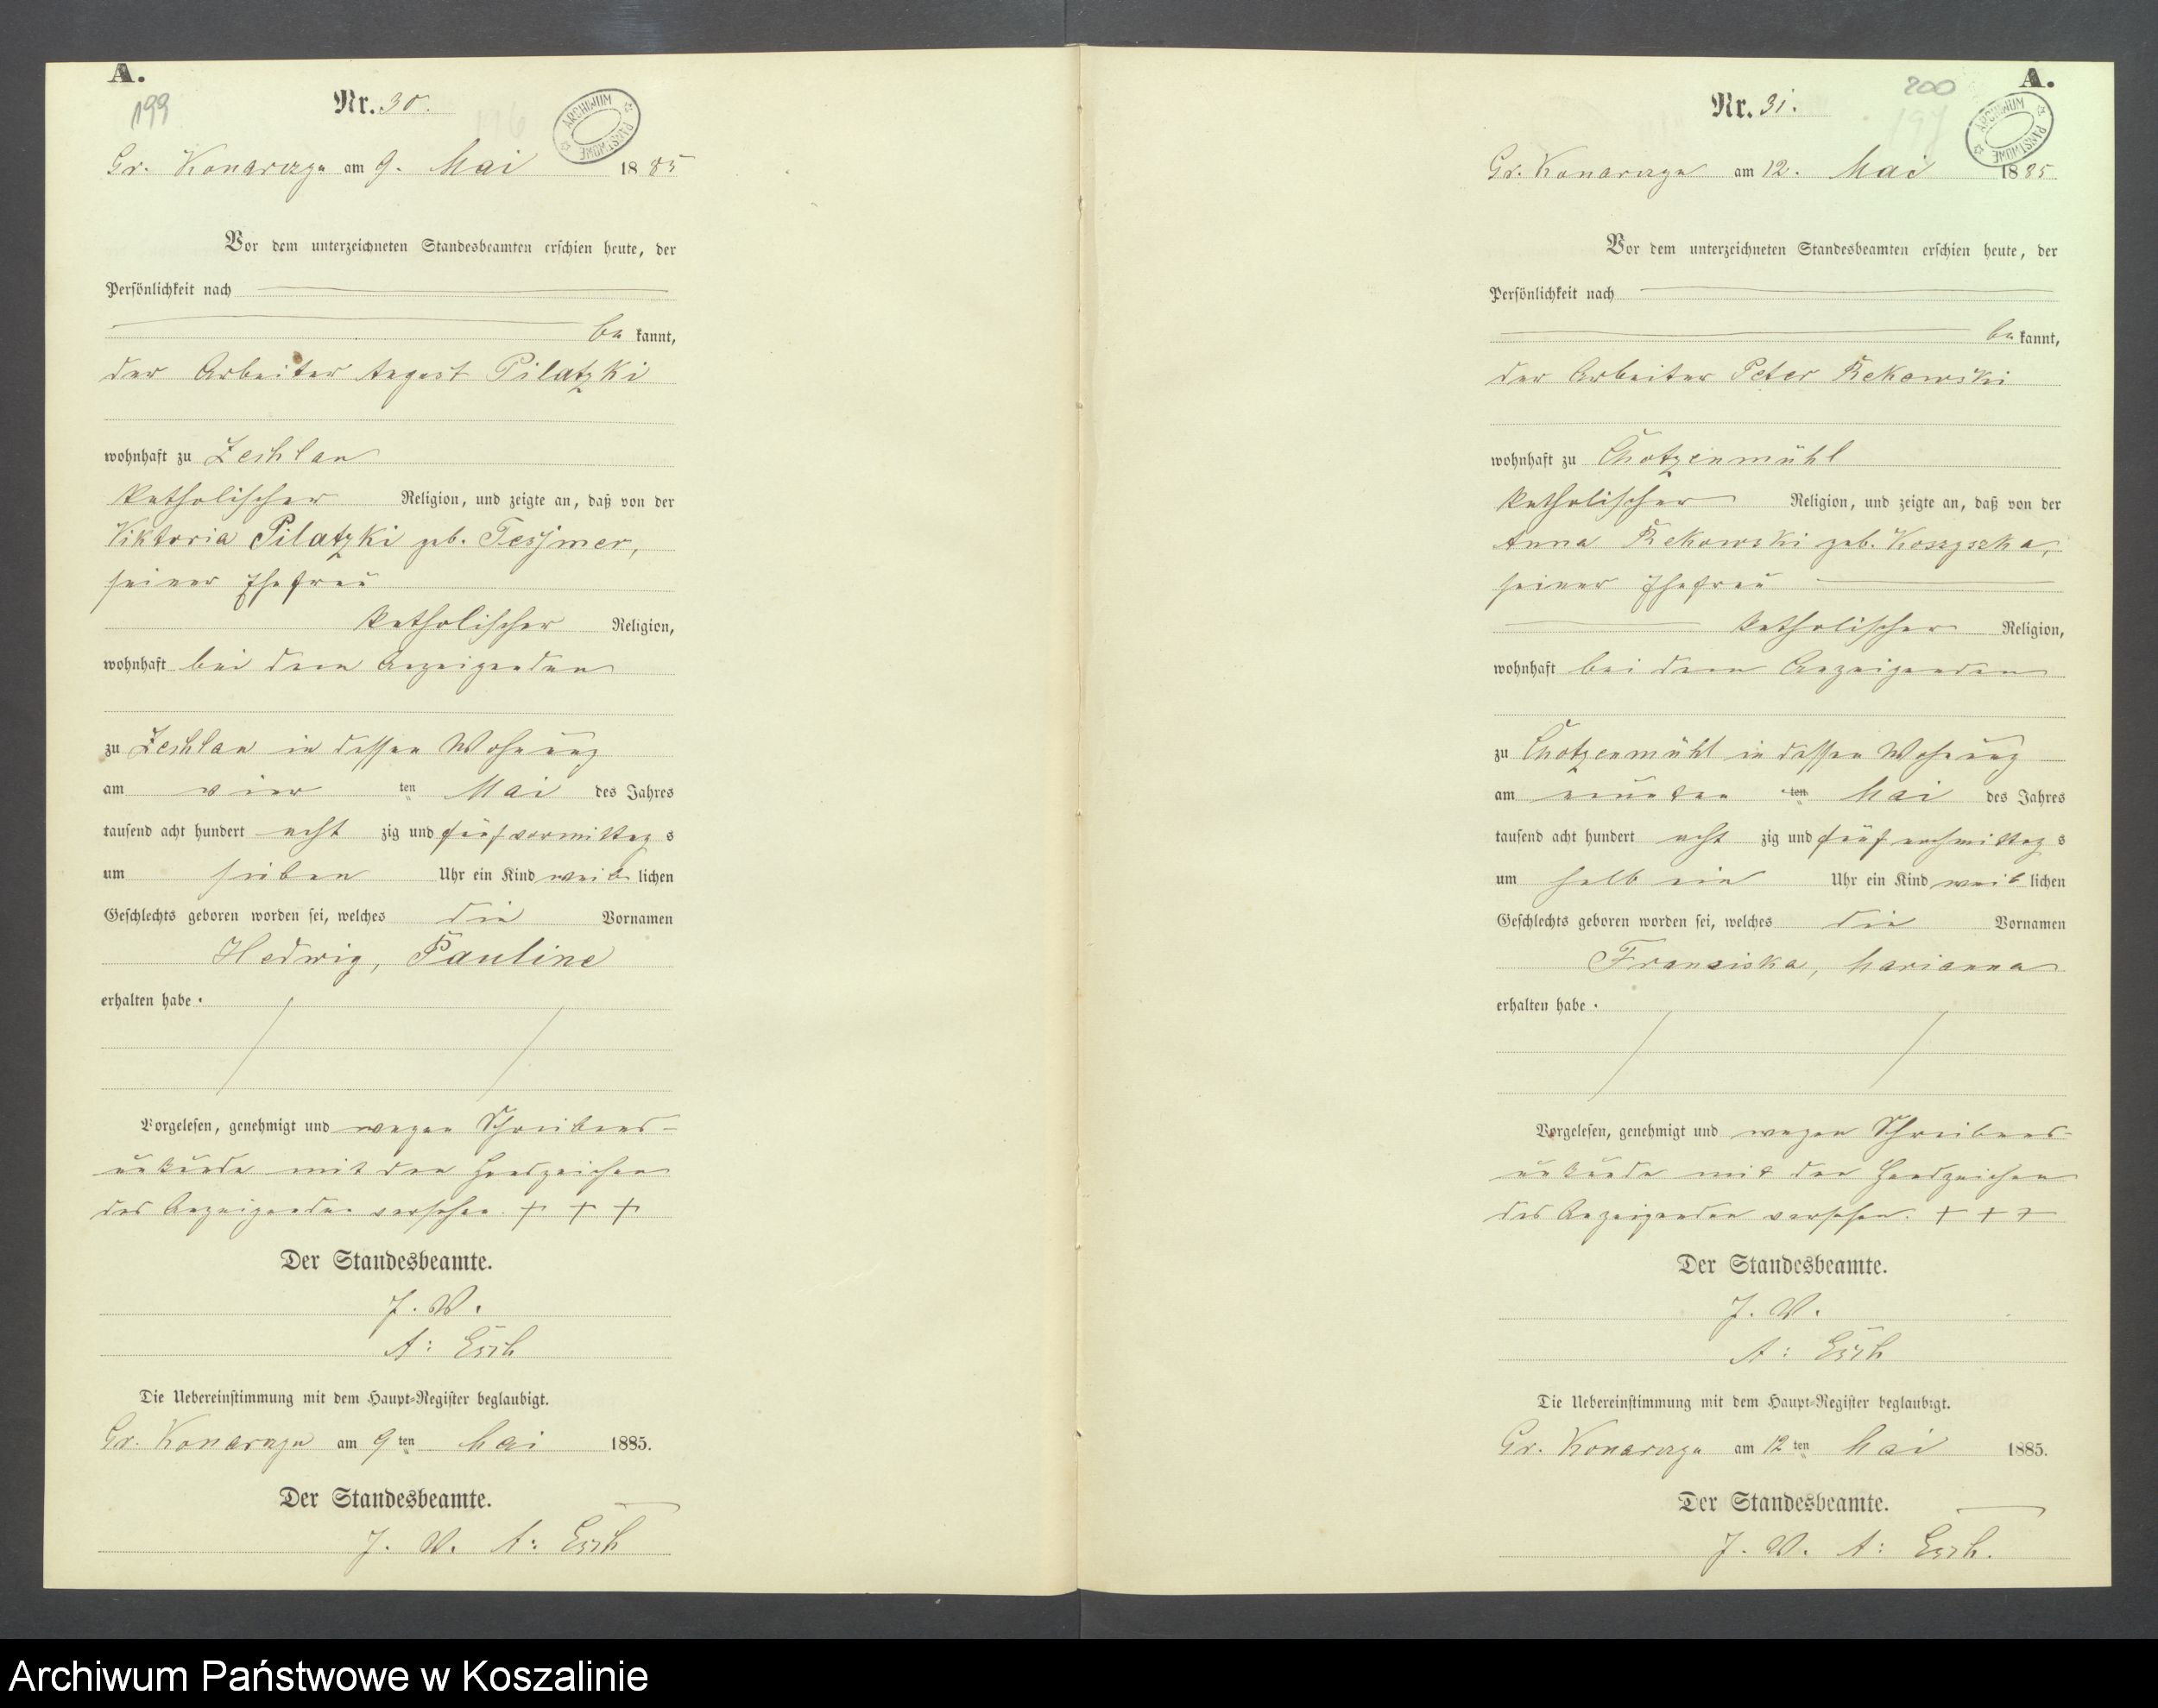 A.
199
Nr. 30.
ARCHIWUM PAŃSTWOWE
Gr. Konarczyn am 9. Mai 1885
Vor dem unterzeichneten Standesbeamten erschien heute, der
Persönlichkeit nach
be kannt,
der Arbeiter August Pilatzki
wohnhaft zu Zechlau
katholischer Religion, und zeigte an, daß von der
Viktoria Pilatzki geb. Tessmer,
seiner Ehefrau
katholischer Religion,
wohnhaft bei dem Anzeigenden
zu Zechlau in dessen Wohnung
am vier ten Mai des Jahres
tausend acht hundert acht zig und fünf vormittag s
um sieben Uhr ein Kind weib lichen
Geschlechts geboren worden sei, welches die Vornamen
Hedwig, Pauline
erhalten habe.
Vorgelesen, genehmigt und wegen Schreibens-
unkunde mit den Handzeichen
des Anzeigenden versehen. + + +
Der Standesbeamte.
J. V.
A: Esch
Die Uebereinstimmung mit dem Haupt-Register beglaubigt.
Gr. Konarczyn am 9 ten Mai 1885.
Der Standesbeamte.
J. V. A: Esch
A.
200
197
Nr. 31.
ARCHIWUM PAŃSTWOWE
Gr. Konarczyn am 12. Mai 1885
Vor dem unterzeichneten Standesbeamten erschien heute, der
Persönlichkeit nach
be kannt,
der Arbeiter Peter Rekowski
wohnhaft zu Chotzenmühl
katholischer Religion, und zeigte an, daß von der
Anna Rekowski geb. Koszyszka,
seiner Ehefrau
katholischer Religion,
wohnhaft bei dem Anzeigenden
zu Chotzenmühl in dessen Wohnung
am neunten ten Mai des Jahres
tausend acht hundert acht zig und fünf nachmittag s
um halb ein Uhr ein Kind weib lichen
Geschlechts geboren worden sei, welches die Vornamen
Franziska, Marianna
erhalten habe.
Vorgelesen, genehmigt und wegen Schreibens-
unkunde mit den Handzeichen
des Anzeigenden versehen. + + +
Der Standesbeamte.
J. V.
A: Esch
Die Uebereinstimmung mit dem Haupt-Register beglaubigt.
Gr. Konarczyn am 12 ten Mai 1885.
Der Standesbeamte.
J. V. A: Esch.
Archiwum Państwowe w Koszalinie